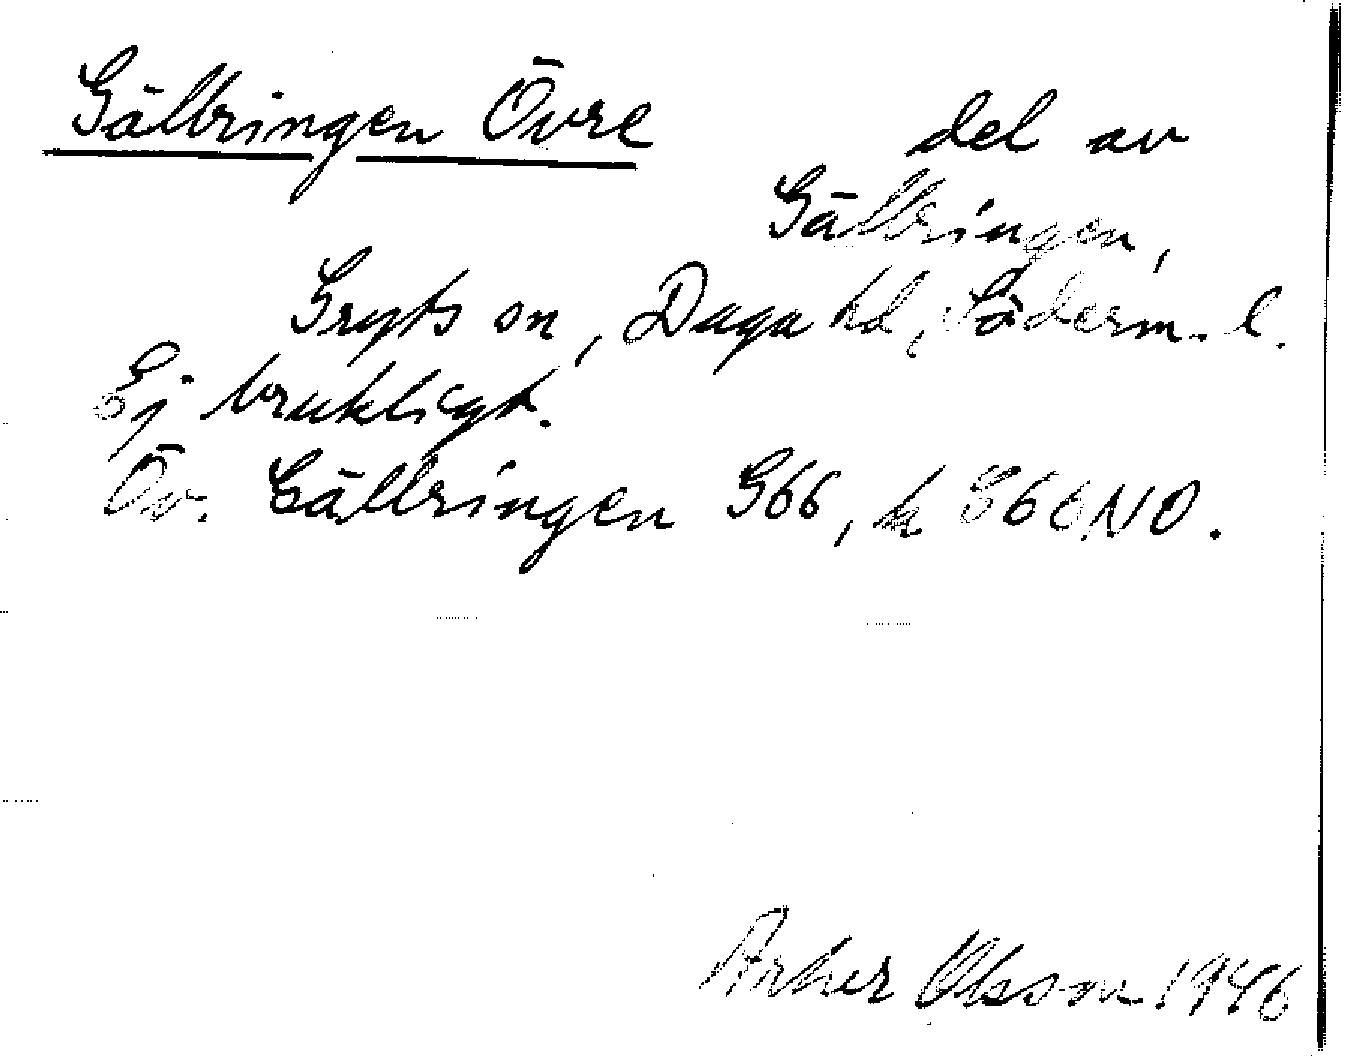 Gälbringen Övre del av
Gälbringen,
Gryts sn, Daga hd, Söderm. l.
Ej brukligt.
Öv. Gällringen G66, k G66NO.
Arther Olsson 1946